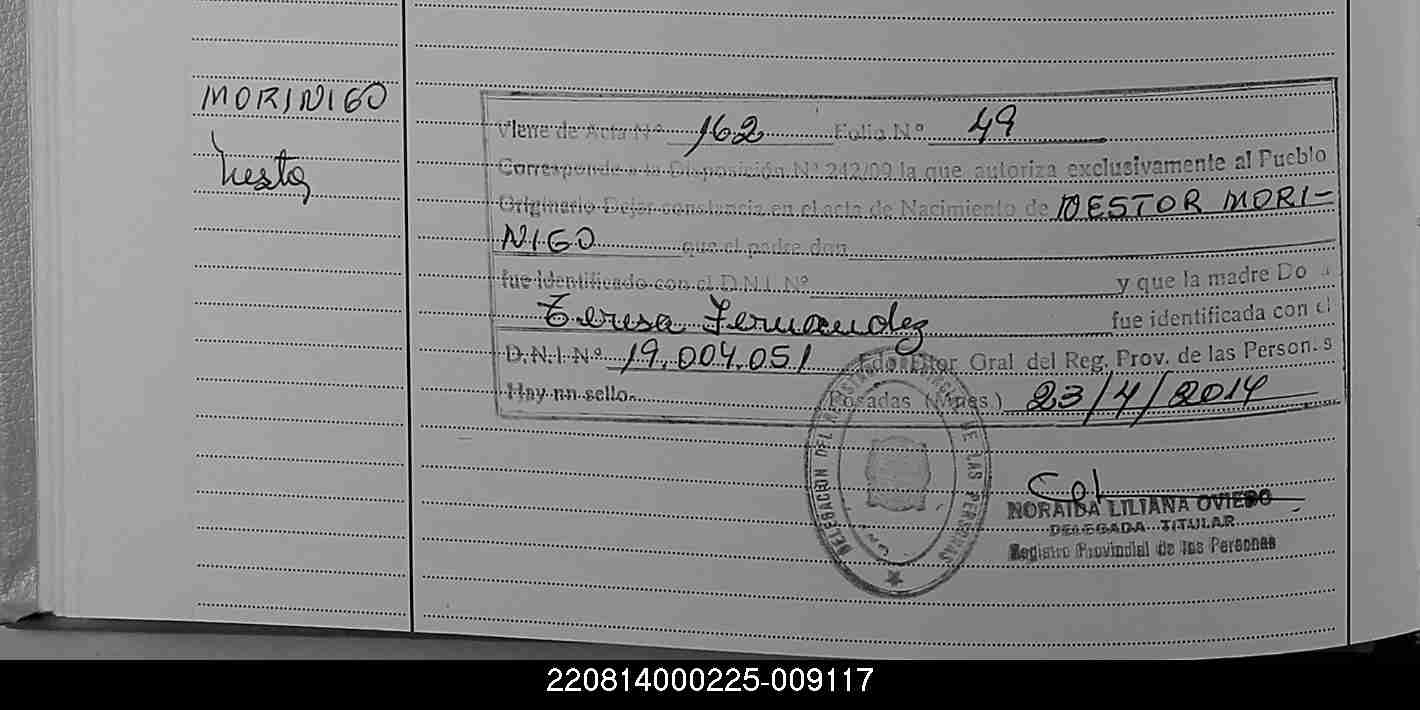 MORINIGO
Nestor
Viene de Acta Nº 162 Folio Nº 49
Corresponde a la Disposición Nº 242/09 la que autoriza exclusivamente al Pueblo
Originario Dejar constancia en el acta de Nacimiento de NESTOR MORI-
NIGO que el padre don
fue identificado con el D.N.I. Nº y que la madre Do a
Teresa Fernandez fue identificada con el
D.N.I. Nº 19.004.051 Fdo Dtor Gral del Reg. Prov. de las Person.s
Hay un sello. Posadas (Mnes.) 23/4/2014
DELEGACION DEL DE LAS PERSONAS
NORAIDA LILIANA OVIEDO
DELEGADA TITULAR
Registro Provincial de las Personas
220814000225-009117